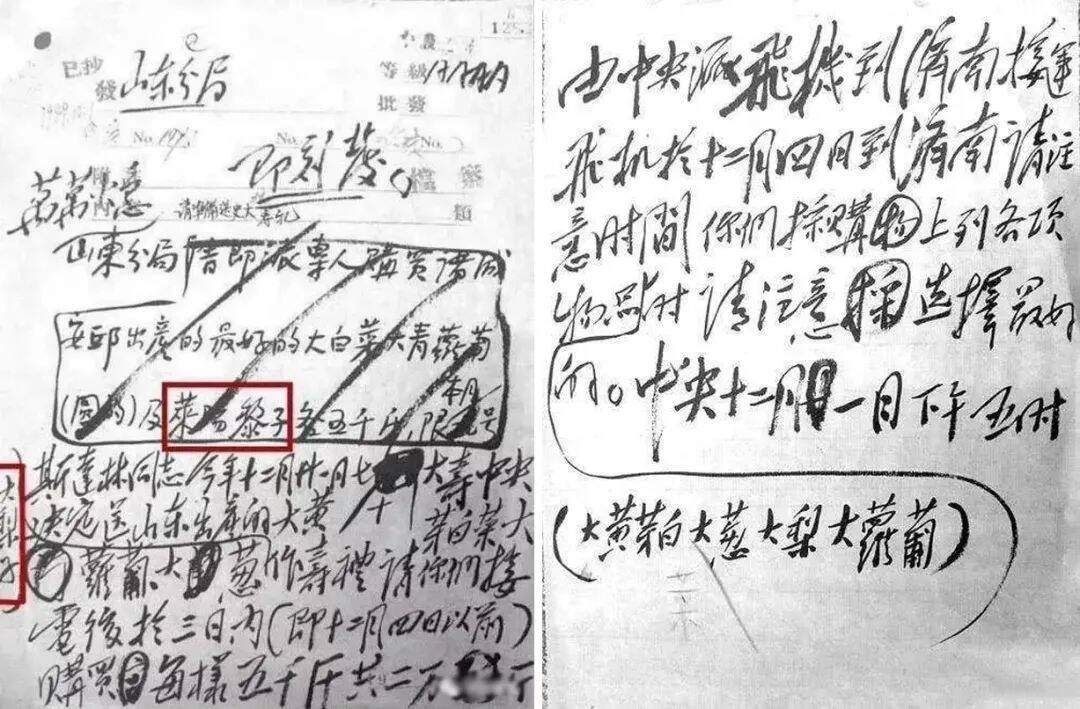 已抄
發 山东分局
等級
批發
No. No. No.
即刻發。
檔案
请准備送史大寿礼
山東分局 請即派專人購買諸城
安邱出產的最好的大白菜大青蘿蔔
(圓的)及萊陽黎子各五千斤,限本月
斯達林同志今年十二月廿一日七十大壽中央
决定送山东出產的大黃芽白菜大
大梨子
蘿蔔、大葱作壽禮請你們接
電後於三日內(即十二月四日以前)
購買每樣五千斤共二万斤
由中央派飛機到濟南接運
飛机於十二月四日到濟南请注
意时間 你們採購上列各项
物品时请注意選擇最好
的。中央十二月一日下午五时
(大黃芽白大葱大梨大蘿蔔)
菜